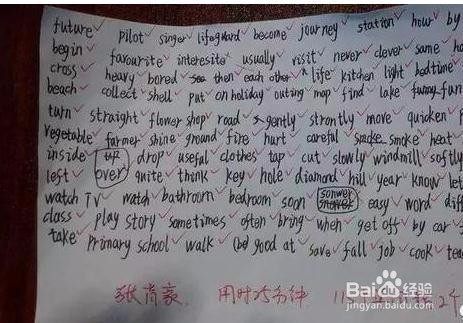 future pilot singer lifeguard become journey station hour by
begin favourite interesite usually visit never clever same ho
cross heavy bored then each other a life kitchen light bedtime
beach collect shell put on holiday outing map find lake funny fun
turn straight flower shop road gently strontly move quicken
vegetable farmer shine ground fire hurt careful smoke smoke heat
inside drop useful clothes tap cut slowly windmill softly
left over quite think key hole diamond hill year know let
watch TV watch bathroom bedroom soon easy word diff
class play story sometimes often bring when get off by car
take primary school walk good at save fall job cook tea
张肖豪 用时25分钟 115个 2个
Baidu 经验
jingyan.baidu.com